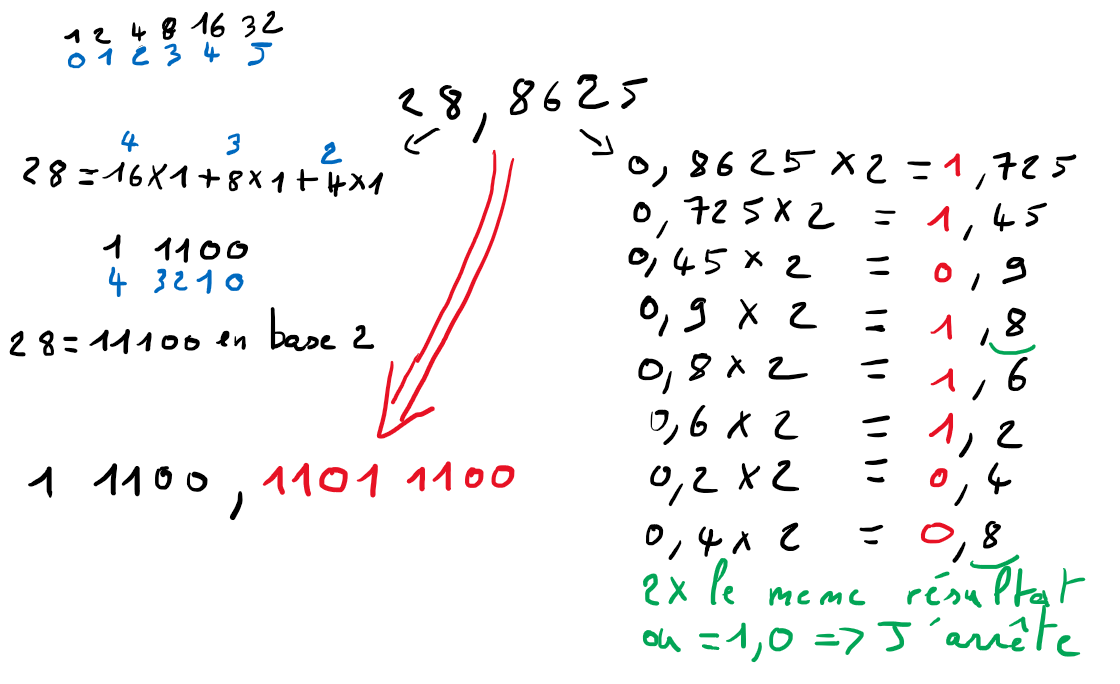 1 2 4 8 16 32
0 1 2 3 4 5
28,8625
4 3 2
28 = 16×1 + 8×1 + 4×1
1 1100
4 3210
28 = 11100 en base 2
1 1100, 1101 1100
0,8625 × 2 = 1,725
0,725 × 2 = 1,45
0,45 × 2 = 0,9
0,9 × 2 = 1,8
0,8 × 2 = 1,6
0,6 × 2 = 1,2
0,2 × 2 = 0,4
0,4 × 2 = 0,8
2× le meme résultat
ou = 1,0 => J'arrête